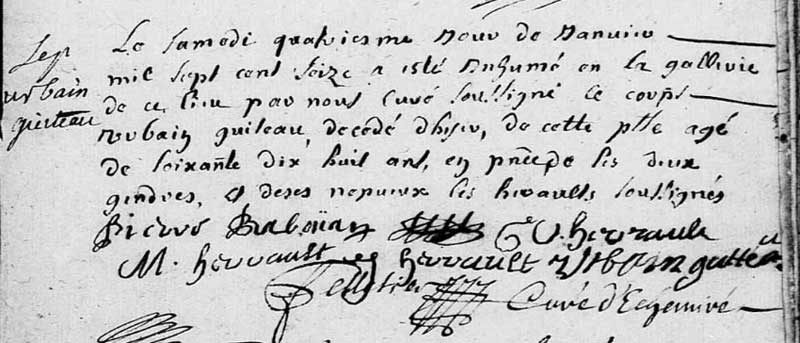 Sep
urbain
guiteau
Le samedi quatriesme Jour de Janvier
mil sept cent seize a esté Inhumé en la gallerie
de ce lieu par nous curé soussigné le corps
urbain guiteau, decedé d'hier, de cette psse agé
de soixante dix huit ans, en pñce de ses deux
gendres, et de ses nepveux les heraults soussignés
Pierre Rabouan V. herrault
M. herrault herrault Urbain guitteau
Pelletier
Curé d'Echemiré